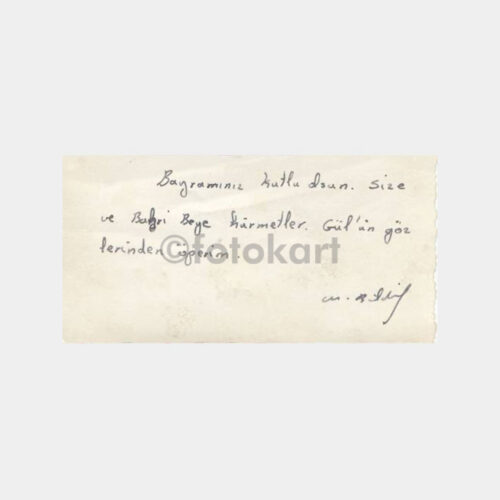 Bayramınız kutlu olsun. Size
ve Bahri Beye hürmetler. Gül'ün göz
lerinden öperim.
©fotokart